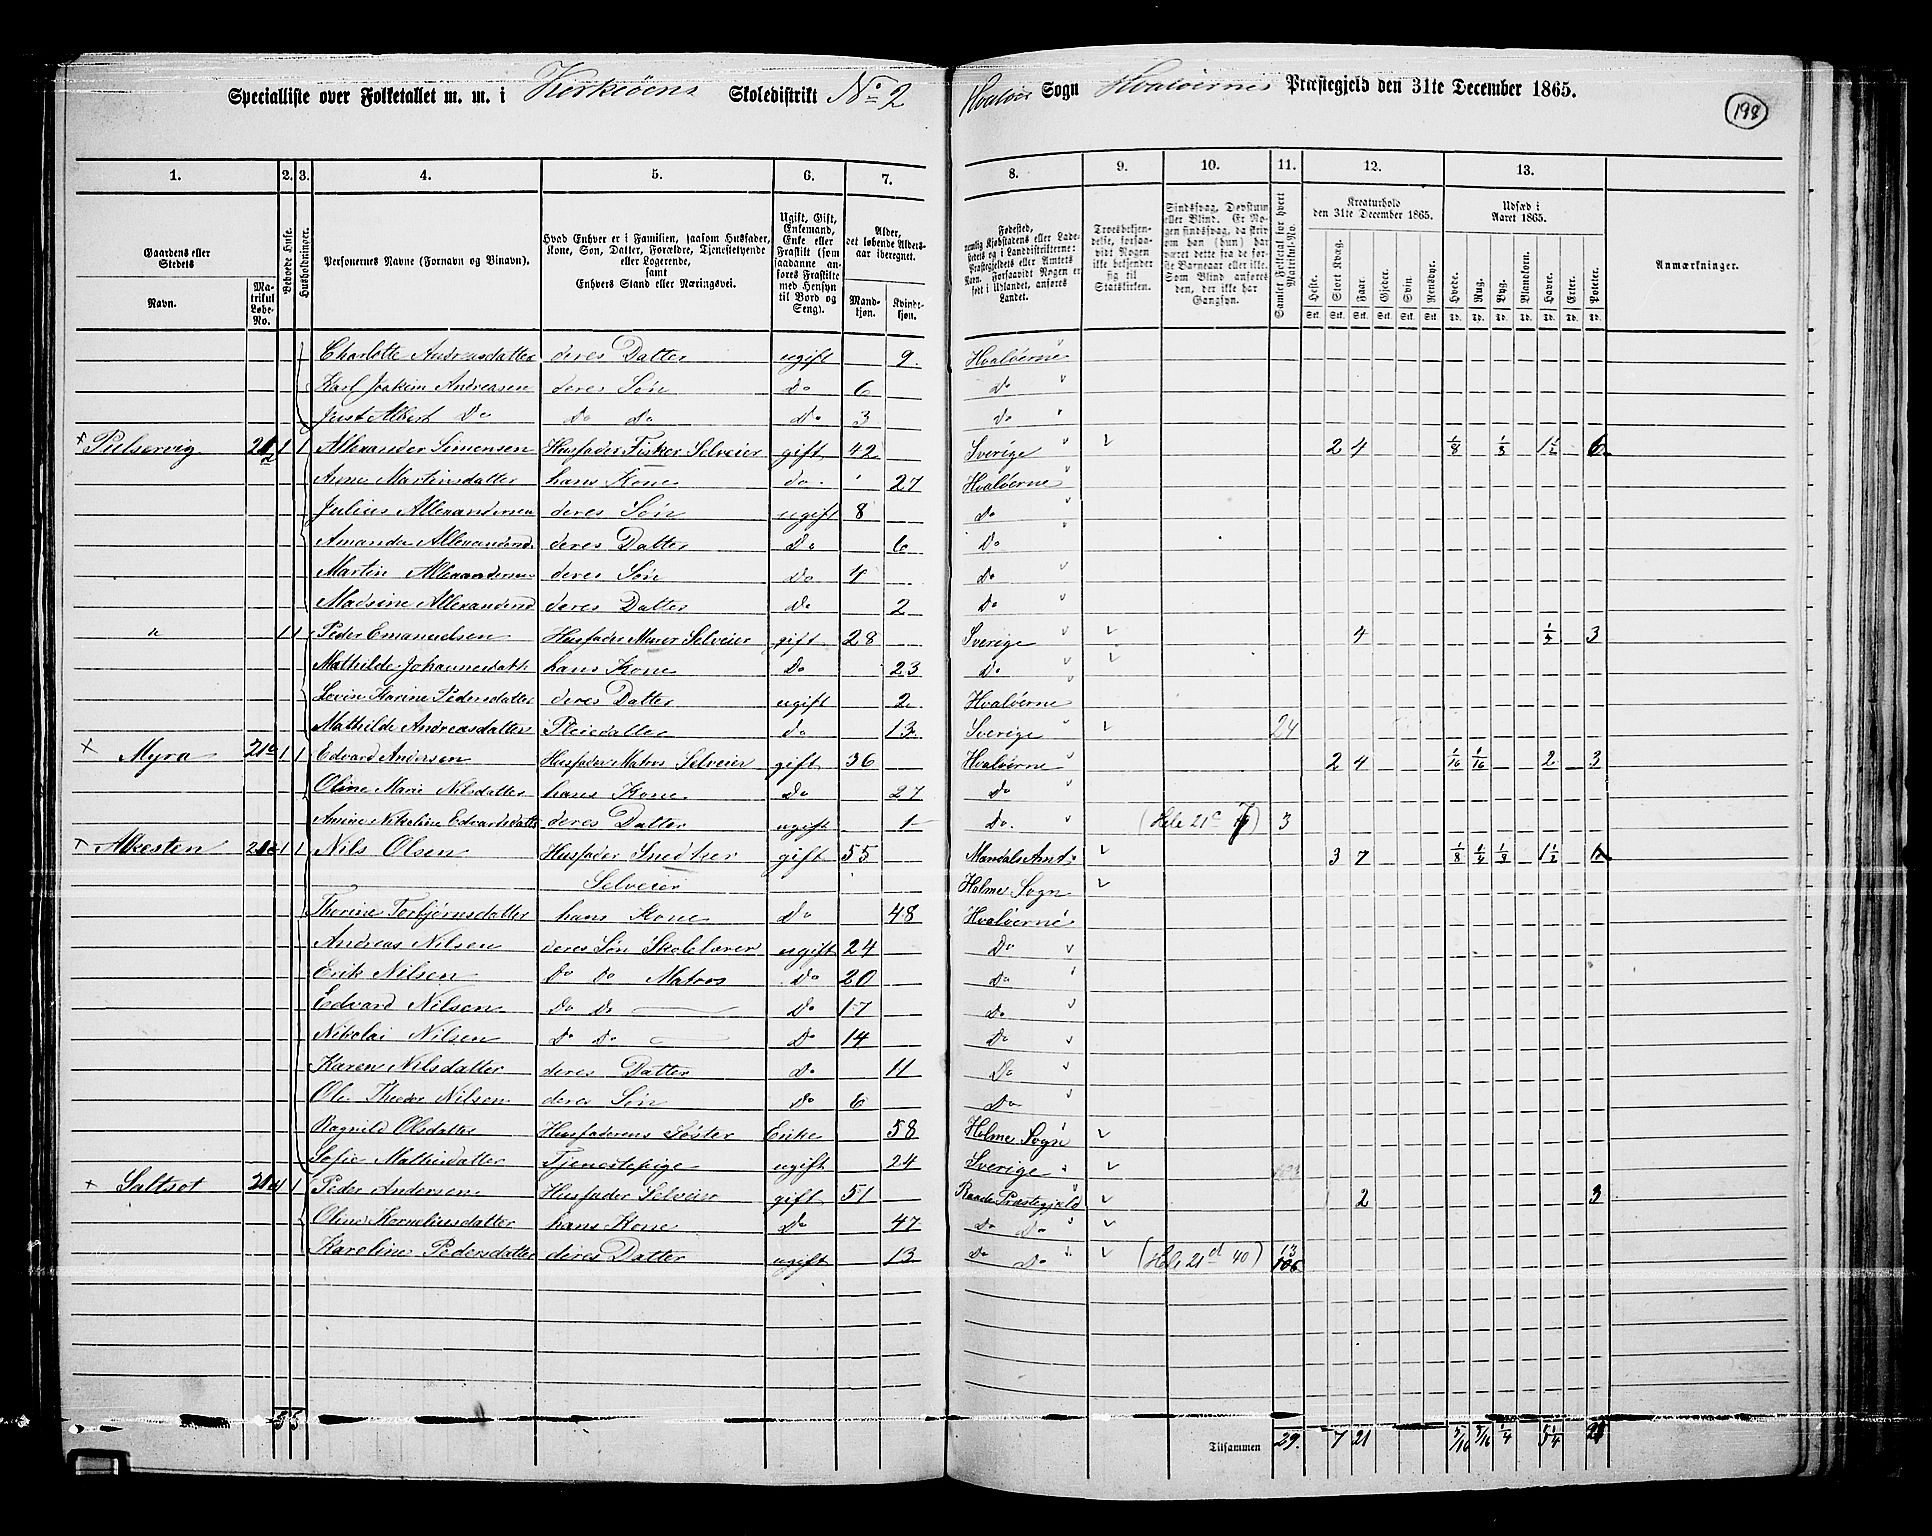 Specialliste over Folketallet m. m. i Kirkeöens Skoledistrikt No 2 Hvalöer Sogn Hvalöernes Præstegjeld den 31te December 1865.
198
1. 2. 3. 4. 5. 6. 7. 8. 9. 10. 11. 12. 13.
Gaardens eller Stedets
Navn.
Matrikul Løbe-No.
Beboede Huse.
Husholdninger.
Personernes Navne (Fornavn og Binavn).
Hvad Enhver er i Familien, saasom Husfader, Kone, Søn, Datter, Forældre, Tjenestetyende eller Logerende, samt Enhvers Stand eller Næringsvei.
Ugift, Gift, Enkemand, Enke eller Fraskilt (som saadanne anføres Fraskilte med Hensyn til Bord og Seng).
Alder, det løbende Aldersaar iberegnet.
Mandkjøn.
Kvindekjøn.
Fødested, nemlig Kjøbstadens eller Ladestedets og i Landdistrikterne: Præstegjeldets eller Amtets Navn. Forsaavidt Nogen er født i Udlandet, anføres Landet.
Troesbekjendelse, forsaavidt Nogen ikke bekjender sig til Statskirken.
Sindssvag, Døvstum eller Blind. Er Nogen sindssvag, da skriv om han (hun) har været dette fra de første Barneaar eller ikke. Som Blind anføres den, der ikke har Gangsyn.
Samlet Folketal for hvert Matrikul-No.
Kreaturhold den 31te December 1865.
Heste. Stort Kvæg. Faar. Gjeder. Svin. Rensdyr.
Udsæd i Aaret 1865.
Hvede. Rug. Byg. Blandkorn. Havre. Erter. Poteter.
Anmærkninger.
Charlotte Andreasdatter deres Datter ugift 9 Hvalöerne
Karl Joakim Andreasen deres Søn Do 6 Do
Just Albert Do Do Do Do 3 Do
Pulservig 1 1 Allexander Simensen Husfader Fisker Selveier gift 42 Sverige 2 4 1/8 1/8 1 1/2 6
Anne Martinsdatter hans Kone do 27 Hvalöerne
Julius Allexandersen deres Søn ugift 8 Do
Amanda Allexandersd deres Datter Do 6 Do
Martin Allexandersen deres Søn Do 4 Do
Madsine Allexandersd deres Datter Do 2 Do
" 1 1 Peder Emanuelsen Husfader Murer Selveier gift 28 Sverige 4 1/4 3
Mathilde Johannesdatt hans Kone Do 23 Do
Lovise Karine Pedersdatter deres Datter ugift 2 Hvalöerne
Mathilde Andreasdatter Pleiedatter do 13 Sverige 24
Myra 21c 1 1 Edvard Andersen Husfader Matros Selveier gift 36 Hvalöerne 2 4 1/16 1/16 2 3
Oline Marie Nilsdatter hans Kone Do 27 Do
Amine Nikoline Edvardsdatter deres Datter ugift 1 Do. (Hele 21c 7) 3
Alkesten 1 1 Nils Olsen Husfader Snedker gift 55 Mandals Amt 3 7 1/8 1/4 1/8 1 1/2
Selveier Holme Sogn
Therine Torbjørnsdatter hans Kone Do 48 Hvalöerne
Andreas Nilsen deres Søn Skolelærer ugift 24 Do
Erik Nilsen Do Do Matros Do 20 Do
Edvard Nilsen Do Do Do 17 Do
Nikolai Nilsen Do Do Do 14 Do
Karen Nilsdatter deres Datter Do 11 Do
Ole Theodor Nilsen deres Søn Do 6 Do
Ragnild Olsdatter Husfaderens Søster Enke 58 Holme Sogn
Sofie Mathisdatter Tjenestepige ugift 24 Sverige
Saltsot 1 Peder Andersen Husfader Selveier gift 51 Raade Præstegjeld 2 3
Oline Kornelinsdatter hans Kone Do 47 Do Do
Karoline Pedersdatter deres Datter ugift 13 Do Do (Hele 21d 40) 13
Tilsammen 29. 7 21 5/16 5/16 1/4 5 1/4